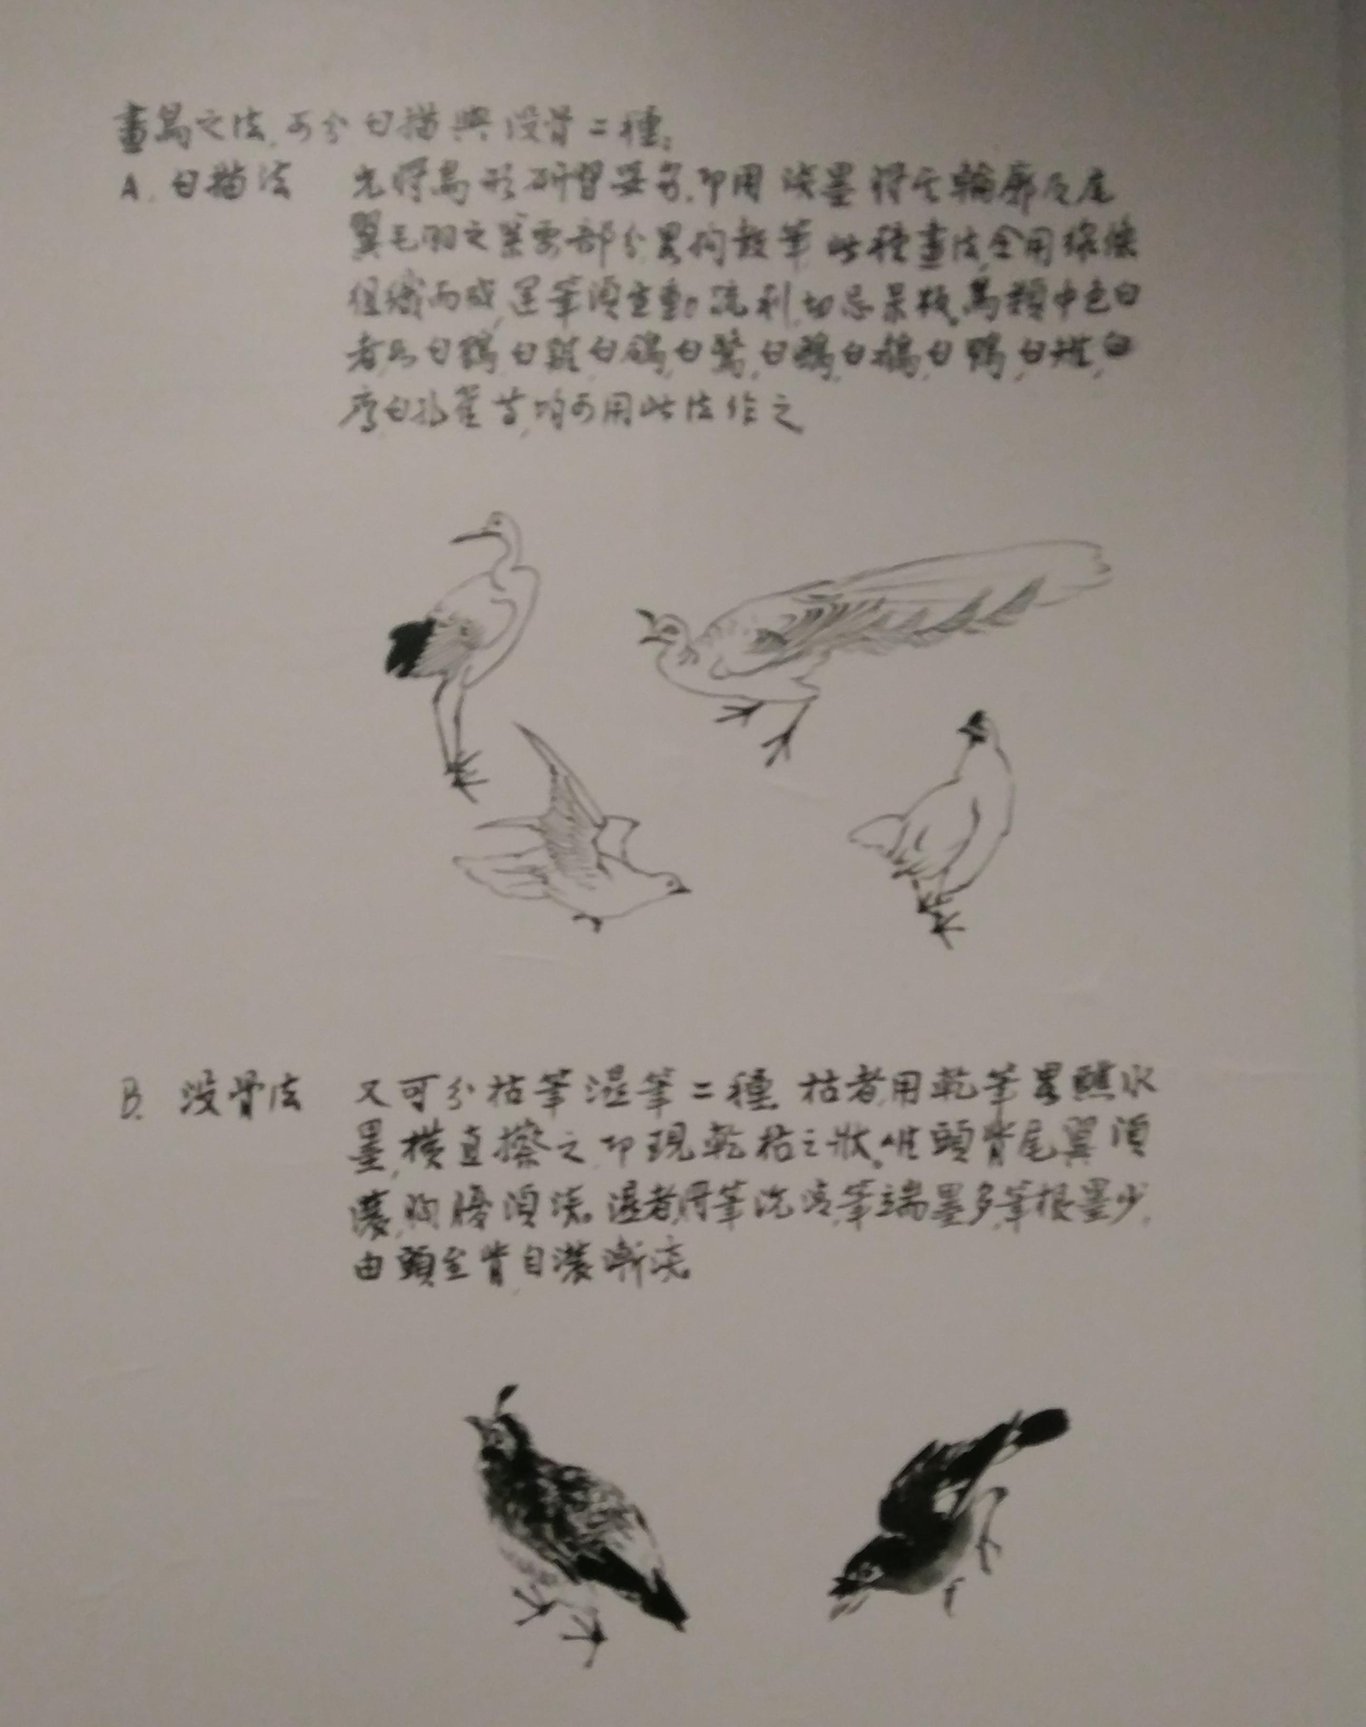 畫鳥之法,可分白描與沒骨二種。
A. 白描法 先將鳥形研習妥當,即用淡墨將其輪廓及尾
翼毛羽之重要部分畧鉤數筆,此種畫法,全用線條
組織而成,運筆須生動流利,切忌呆板。鳥類中色白
者,如白鶴,白雞,白鴿,白鷺,白鷴,白鵝,白鴨,白雉,白
鷹,白孔雀等,均可用此法作之
B. 沒骨法 又可分枯筆濕筆二種 枯者,用乾筆畧醮水
墨,橫直擦之,即現乾枯之狀。唯頭背尾翼須
濃,胸腹須淡。濕者,將筆洗淨,筆端墨多,筆根墨少,
由頭至背,自濃漸淡